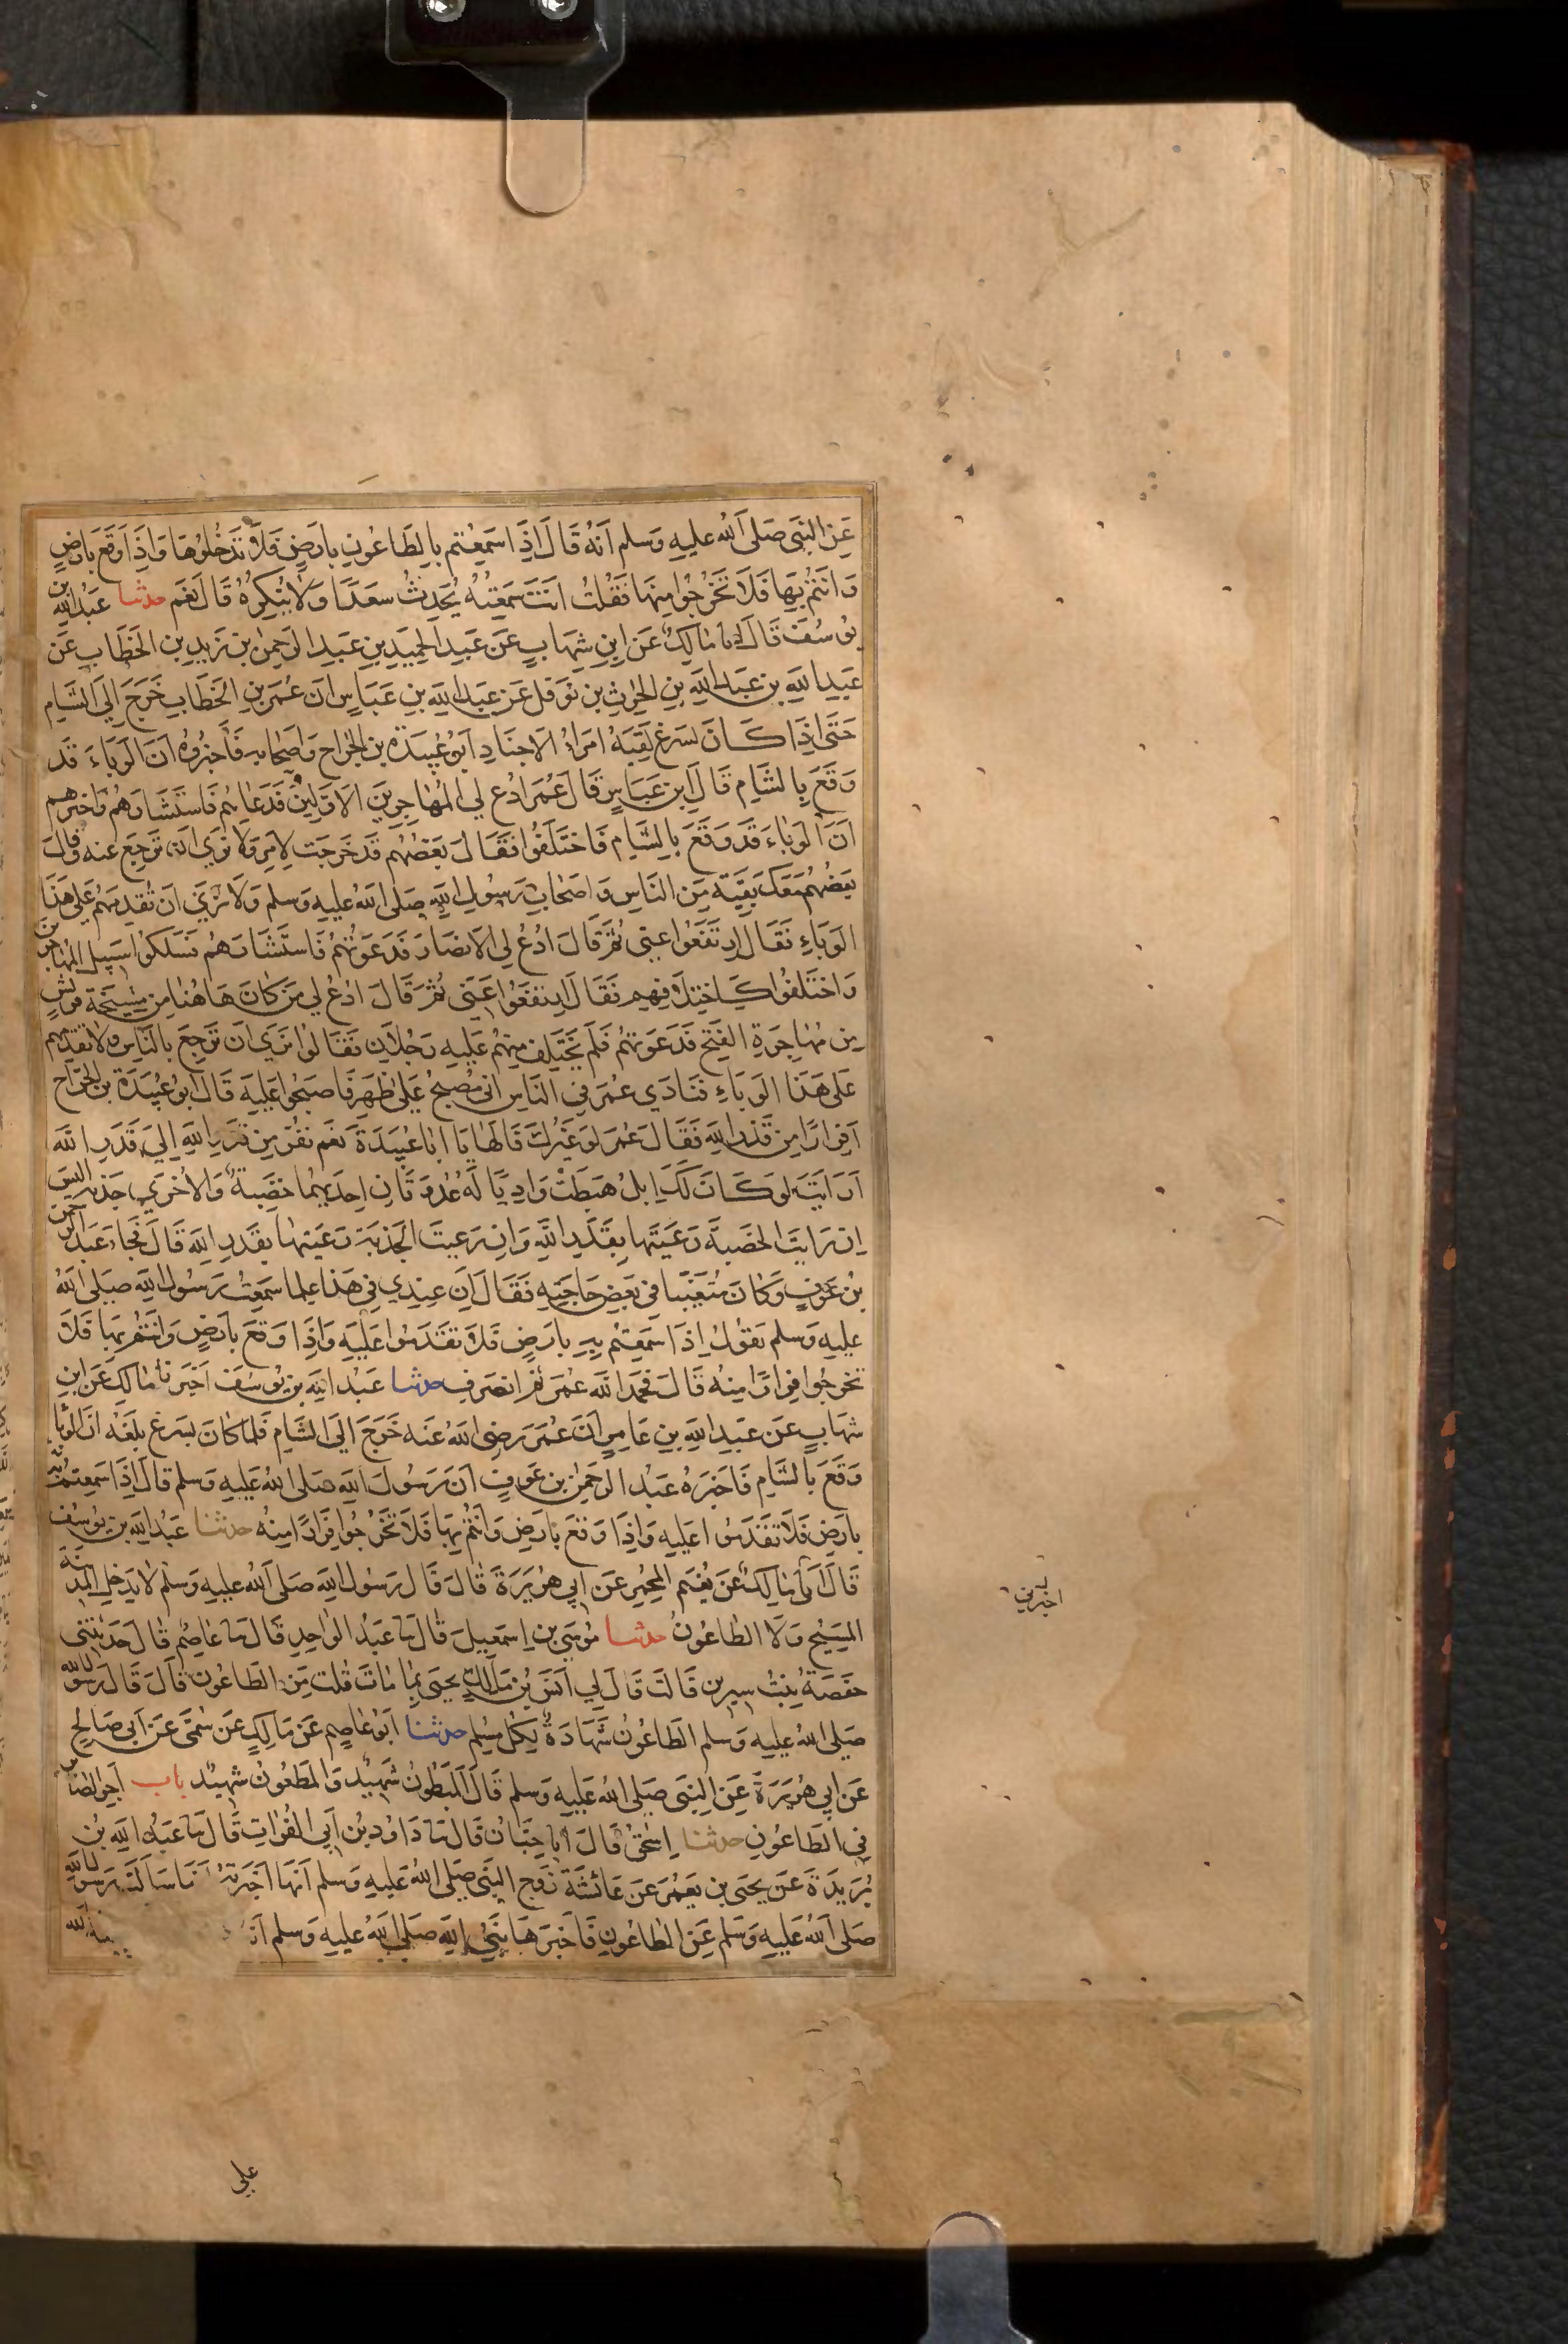 عَنِ النَّبِيِّ صَلَّى اللهُ عليهِ وَسلم أنَّهُ قَالَ اِذَا سَمِعْتُم بِالطَّاعُونِ بِارضٍ فَلَا تَدْخُلُوهَا وَاِذَا وَقَعَ بارضٍ
وَانتُمْ بِهَا فَلَا تَخْرُجُوا مِنهَا فَقُلْتُ انتَ سَمِعْتَهُ يُحَدِّثُ سَعدًا وَلَا يُنكِرُهُ قَالَ نَعَم حدثنا عَبدُ الله بن
يوسُفَ قَالَ انا مَالِكٌ عَن ابنِ شِهَابٍ عَن عَبدِ الحَمِيدِ بنِ عَبدِ الرحمنِ بن زَيدِ بنِ الخَطَّابِ عَن
عَبدِ اللهِ بن عَبدِ اللهِ بنِ الحٰرِثِ بن نوفل عَن عَبدِ اللهِ بنِ عَبَّاسٍ انَّ عُمَرَ بنَ الخَطَّابِ خَرَجَ اِلَى الشَّامِ
حَتَّى اِذَا كَانَ بسَرغَ لَقِيَهُ امَرَاءُ الاجنَادِ ابُو عُبَيدَة بن الجراح وَاصحَابه فَاخبَرُوهُ انَّ الوَبَاءَ قَد
وَقَعَ بِالشَّامِ قَالَ ابن عَبَّاسٍ قَالَ عُمَر ادعُ لي المُهَاجِرِينَ الاوَّلِينَ فَدَعَاهُم فَاستَشَارَهُم وَاخبرهم
انَّ الوَبَاءَ قَد وَقَعَ بِالشَّامِ فَاختَلَفُوا فَقَالَ بَعضُهُم قَد خَرَجتَ لِامرٍ وَلَا نَرَى ان تَرجِعَ عَنه وقال
بَعضُهُم مَعَكَ بَقِيَّة مِنَ النَّاسِ وَاصحَابُ رَسُولِ اللهِ صَلَّى اللهُ عليهِ وَسلم وَلَا نَرَى ان تُقدِمَهُم عَلَى هَذَا
الوَبَاءِ فَقَالَ ارتَفِعُوا عَنِّي ثُمَّ قَالَ ادعُ لِي الانصَارَ فَدَعَوتُهُم فَاستَشَارَهُم فَسَلَكُوا سَبِيلَ المُهَاجرين
وَاختَلَفُوا كَاختِلَافِهِم فَقَالَ ارتفِعُوا عَنِّي ثُمَّ قَالَ ادعُ لِي مَن كَانَ هَاهُنَا مِن مَشيَخَةِ قريشٍ
مِن مُهَاجِرَةِ الفَتحِ فَدَعَوتهُم فَلَم يَختَلِف مِنهُم عَلَيهِ رَجُلَانِ فَقَالُوا نَرَى ان تَرجِعَ بالنَّاسِ وَلَا تقدمهم
عَلَى هَذَا الوَبَاءِ فَنَادَى عُمَر فِي النَّاسِ انِّي مُصبِحٌ عَلَى ظَهرٍ فَاصبِحُوا عَلَيهِ قَالَ ابُو عُبَيدَةَ بن الجرَّاح
افِرَارًا مِن قَدَرِ اللهِ فَقَالَ عُمَر لَو غَيرُكَ قَالَهَا يَا ابَا عُبَيدَةَ نَعَم نَفِرّ مِن قَدَرِ اللهِ الَى قَدَرِ اللَّه
ارَايتَ لَو كَانَ لَكَ ابلٌ هَبَطَتْ وَادِيًا لَهُ عُدوَتَانِ احدَيهُمَا خَصِبَةٌ وَالاخرَى جَدبة اليس
اِن رَعَيتَ الخَصِبَةَ رَعَيتَهَا بِقَدَرِ اللهِ وَان رَعيتَ الجَدبَةَ رَعَيتهَا بِقَدَرِ اللهِ قَالَ فَجَاءَ عَبدُ الرحمن
بنُ عَوفٍ وَكَانَ مُتَغَيِّبًا فِي بَعضِ حَاجَتِهِ فَقَالَ انَّ عِندِي فِي هَذَا عِلمًا سَمِعتُ رَسُولَ اللهِ صَلَّى اللهُ
عليهِ وَسلم يَقُولُ اِذَا سَمِعتُم بِهِ بِارضٍ فَلَا تقدَمُوا عَلَيهِ وَاِذَا وَقَعَ بِارضٍ وَانتُم بِهَا فَلَا
تَخرُجُوا فِرَارًا مِنهُ قَالَ فَحَمِدَ اللهَ عُمَر ثُمَّ انصَرَف حدثنا عَبدُ اللهِ بن يُوسُفَ اخبَرنَا مَالِك عَن ابنِ
شهَابٍ عَن عَبدِ اللهِ بنِ عَامِرٍ انَّ عُمَرَ رَضِي اللهُ عَنه خَرَجَ الَى الشَّامِ فَلَمَّا كَانَ بسَرغَ بَلَغَهُ انَّ الوَبَا
وَقَعَ بِالشَّامِ فَاخبَرَهُ عَبدُ الرَّحمٰنِ بن عَوفٍ انَّ رَسُولَ اللهِ صَلَّى اللهُ عَلَيهِ وَسلم قَالَ اِذَا سَمِعتُم به
بِارضٍ فَلَا تَقدَمُوا عَلَيهِ وَاِذَا وَقَعَ بِارضٍ وَانتُم بِهَا فَلَا تَخرُجُوا فِرَارًا مِنهُ حدثنا عَبدُ اللهِ بن يوسُف
قَالَ انا مَالِكٌ عَن نُعَيمٍ المجمِرِ عَن ابِي هُرَيرَةَ قَالَ قَالَ رَسُولُ اللهِ صَلَّى اللهُ عليهِ وَسلم لَا يَدخلُ المدينة
المَسِيحُ وَلَا الطَّاعُونُ حدثنا مُوسَى بن اِسمَعِيلَ قَالَ نا عَبدُ الوَاحِدِ قَالَ نا عَاصِم قَالَ حَدَّثَتنِي
حَفصَةُ بِنتُ سِيرِينَ قَالَت قَالَ لِي انَسُ بنُ مَالِكٍ يحيَى بِمَا مَاتَ قُلت مِنَ الطَّاعُون قَالَ قَالَ رَسُولُ الله
صَلَّى اللهُ عليهِ وَسلم الطَّاعُونُ شَهَادَةٌ لِكُلِّ مُسلِم حدثنا ابُو عَاصِمٍ عَن مَالِكٍ عَن سُمَيٍّ عَن ابِي صَالِحٍ
عَن ابِي هُرَيرَةَ عَنِ النَّبِي صَلَّى اللهُ عَلَيهِ وَسلم قَالَ المَبطُونُ شَهِيدٌ وَالمَطعُونُ شَهِيدٌ باب اجرِ الصَّابر
فِي الطَّاعُونِ حدثنا اِسحَق قَالَ انا حِبَّانُ قَالَ نا دَاوُد بنُ ابِي الفُرَاتِ قَالَ نا عَبدُ اللهِ بن
بُرَيدَةَ عَن يَحيَى بن يَعمُرَ عَن عَائشَةَ زَوجِ النَّبِي صَلَّى اللهُ عَلَيهِ وَسلم انَّهَا اخبَرَتهُ انَّهَا سَالَت رَسُول الله
صَلَّى اللهُ عَلَيهِ وَسَلم عَنِ الطَّاعُونِ فَاخبَرَهَا نَبِيُّ اللهِ صَلَّى اللهُ عليهِ وَسلم انه
اخبرني
علي